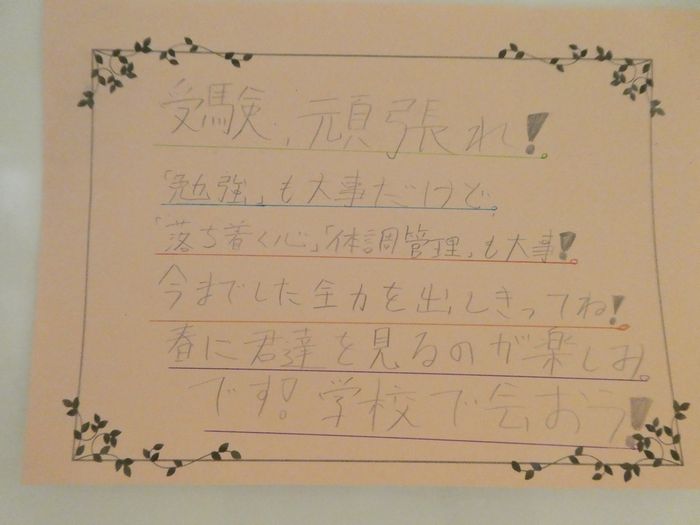 受験、頑張れ!
「勉強」も大事だけど
「落ち着く心」「体調管理」も大事!
今までした全力を出しきってね!
春に君達を見るのが楽しみ
です!学校で会おう!